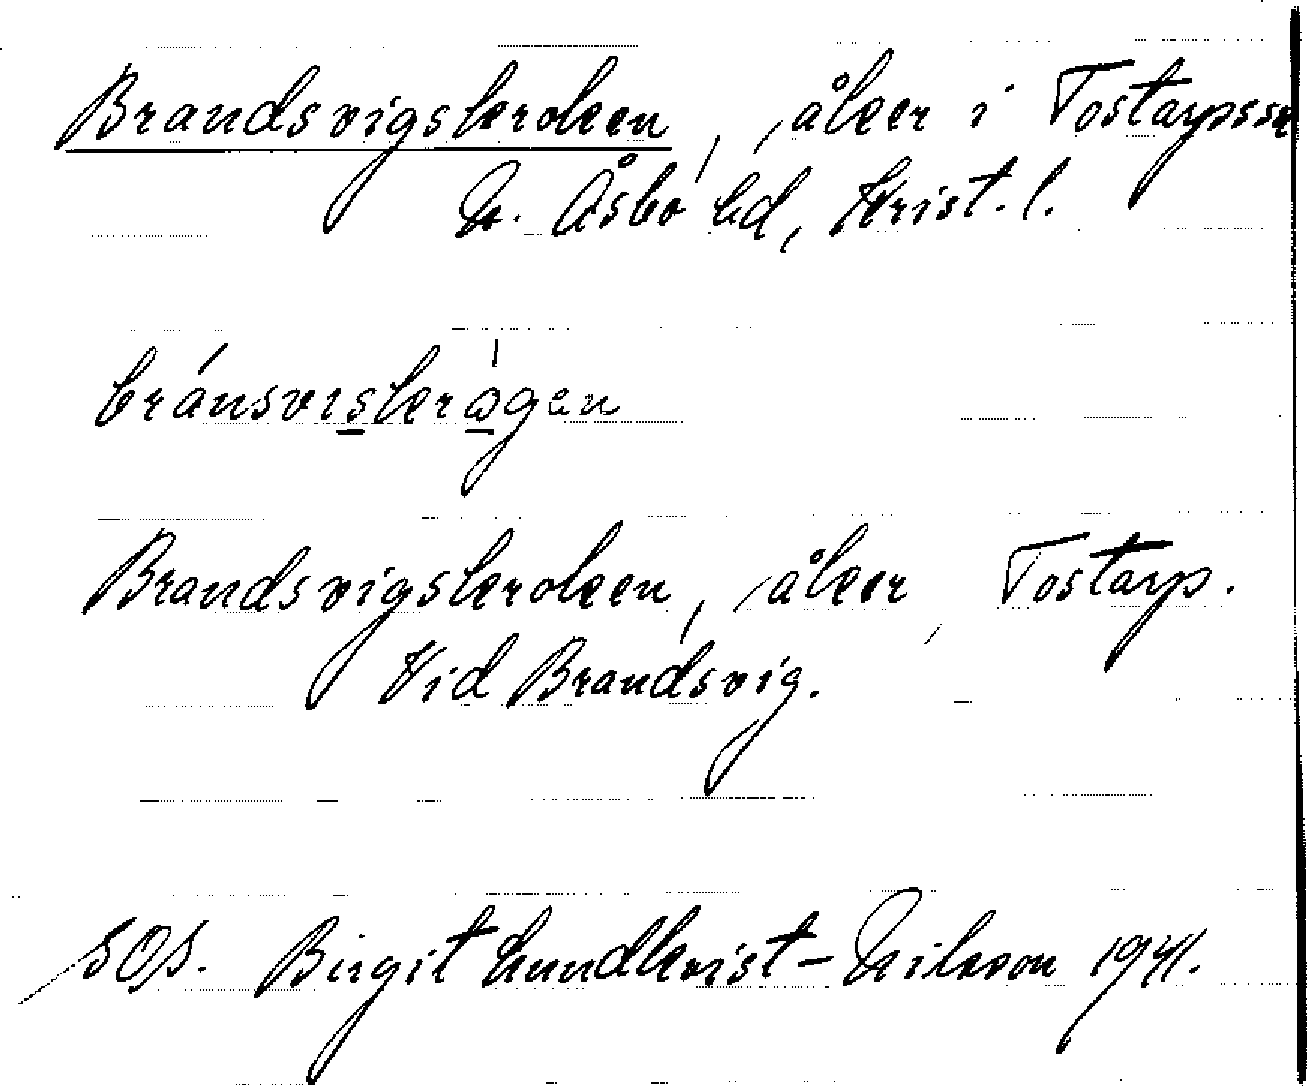 Brandsvigskroken, åker i Tostarpssn
N. Åsbo hd, Krist. l.
bránsvıskrɷ̀gen
Brandsvigskroken, åker, Tostarp.
Vid Brandsvig.
SOS. Birgit Lundkvist-Nilsson 1941.